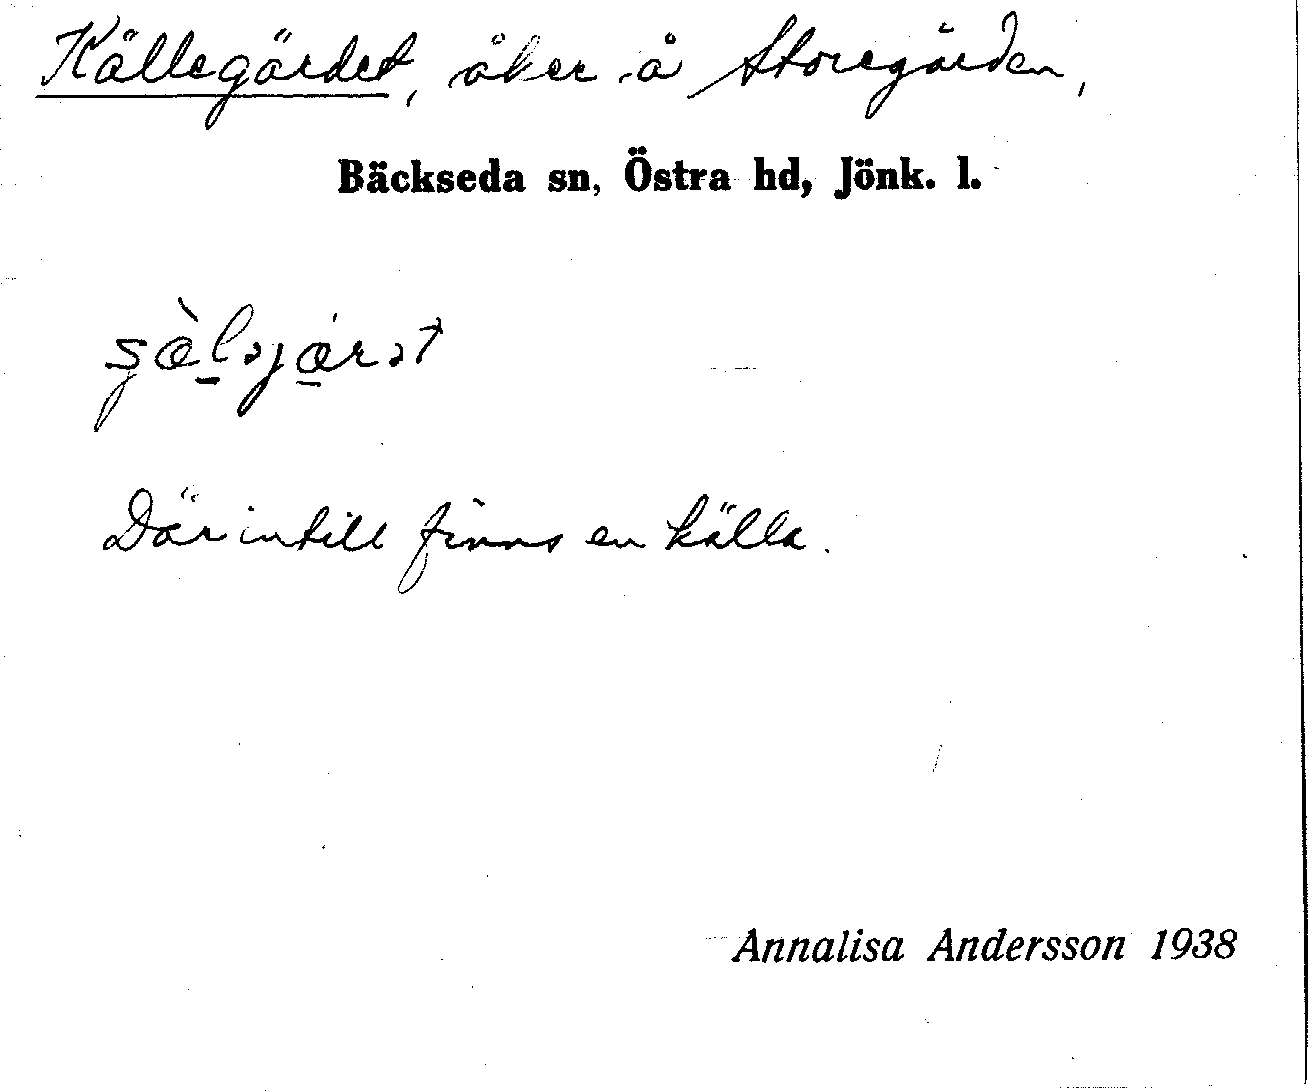 Källegärdet, åker å Storegården,
Bäckseda sn, Östra hd, Jönk. l.
Där intill finns en källa.
Annalisa Andersson 1938